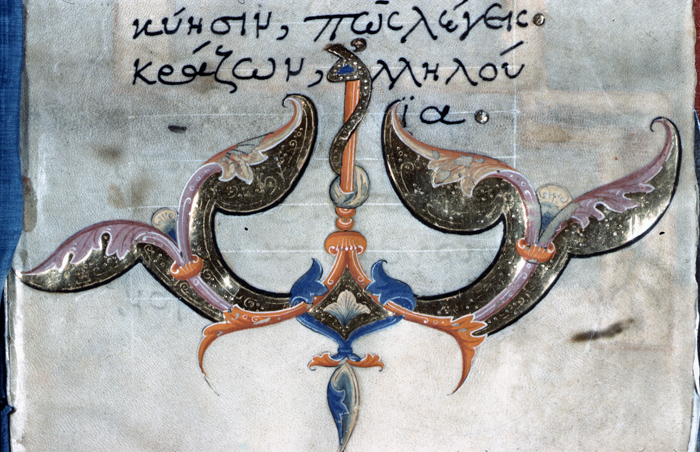 κύησιν, πῶς λέγεις·
κράζων, ἀλληλού
ϊα·